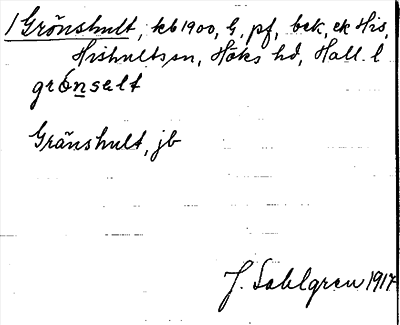 1 Grönshult, kb 1900, G, pf, bek, ek His,
Hishults sn, Höks hd, Hall. l
grönselt
Gränshult, jb
J. Sahlgren 1917